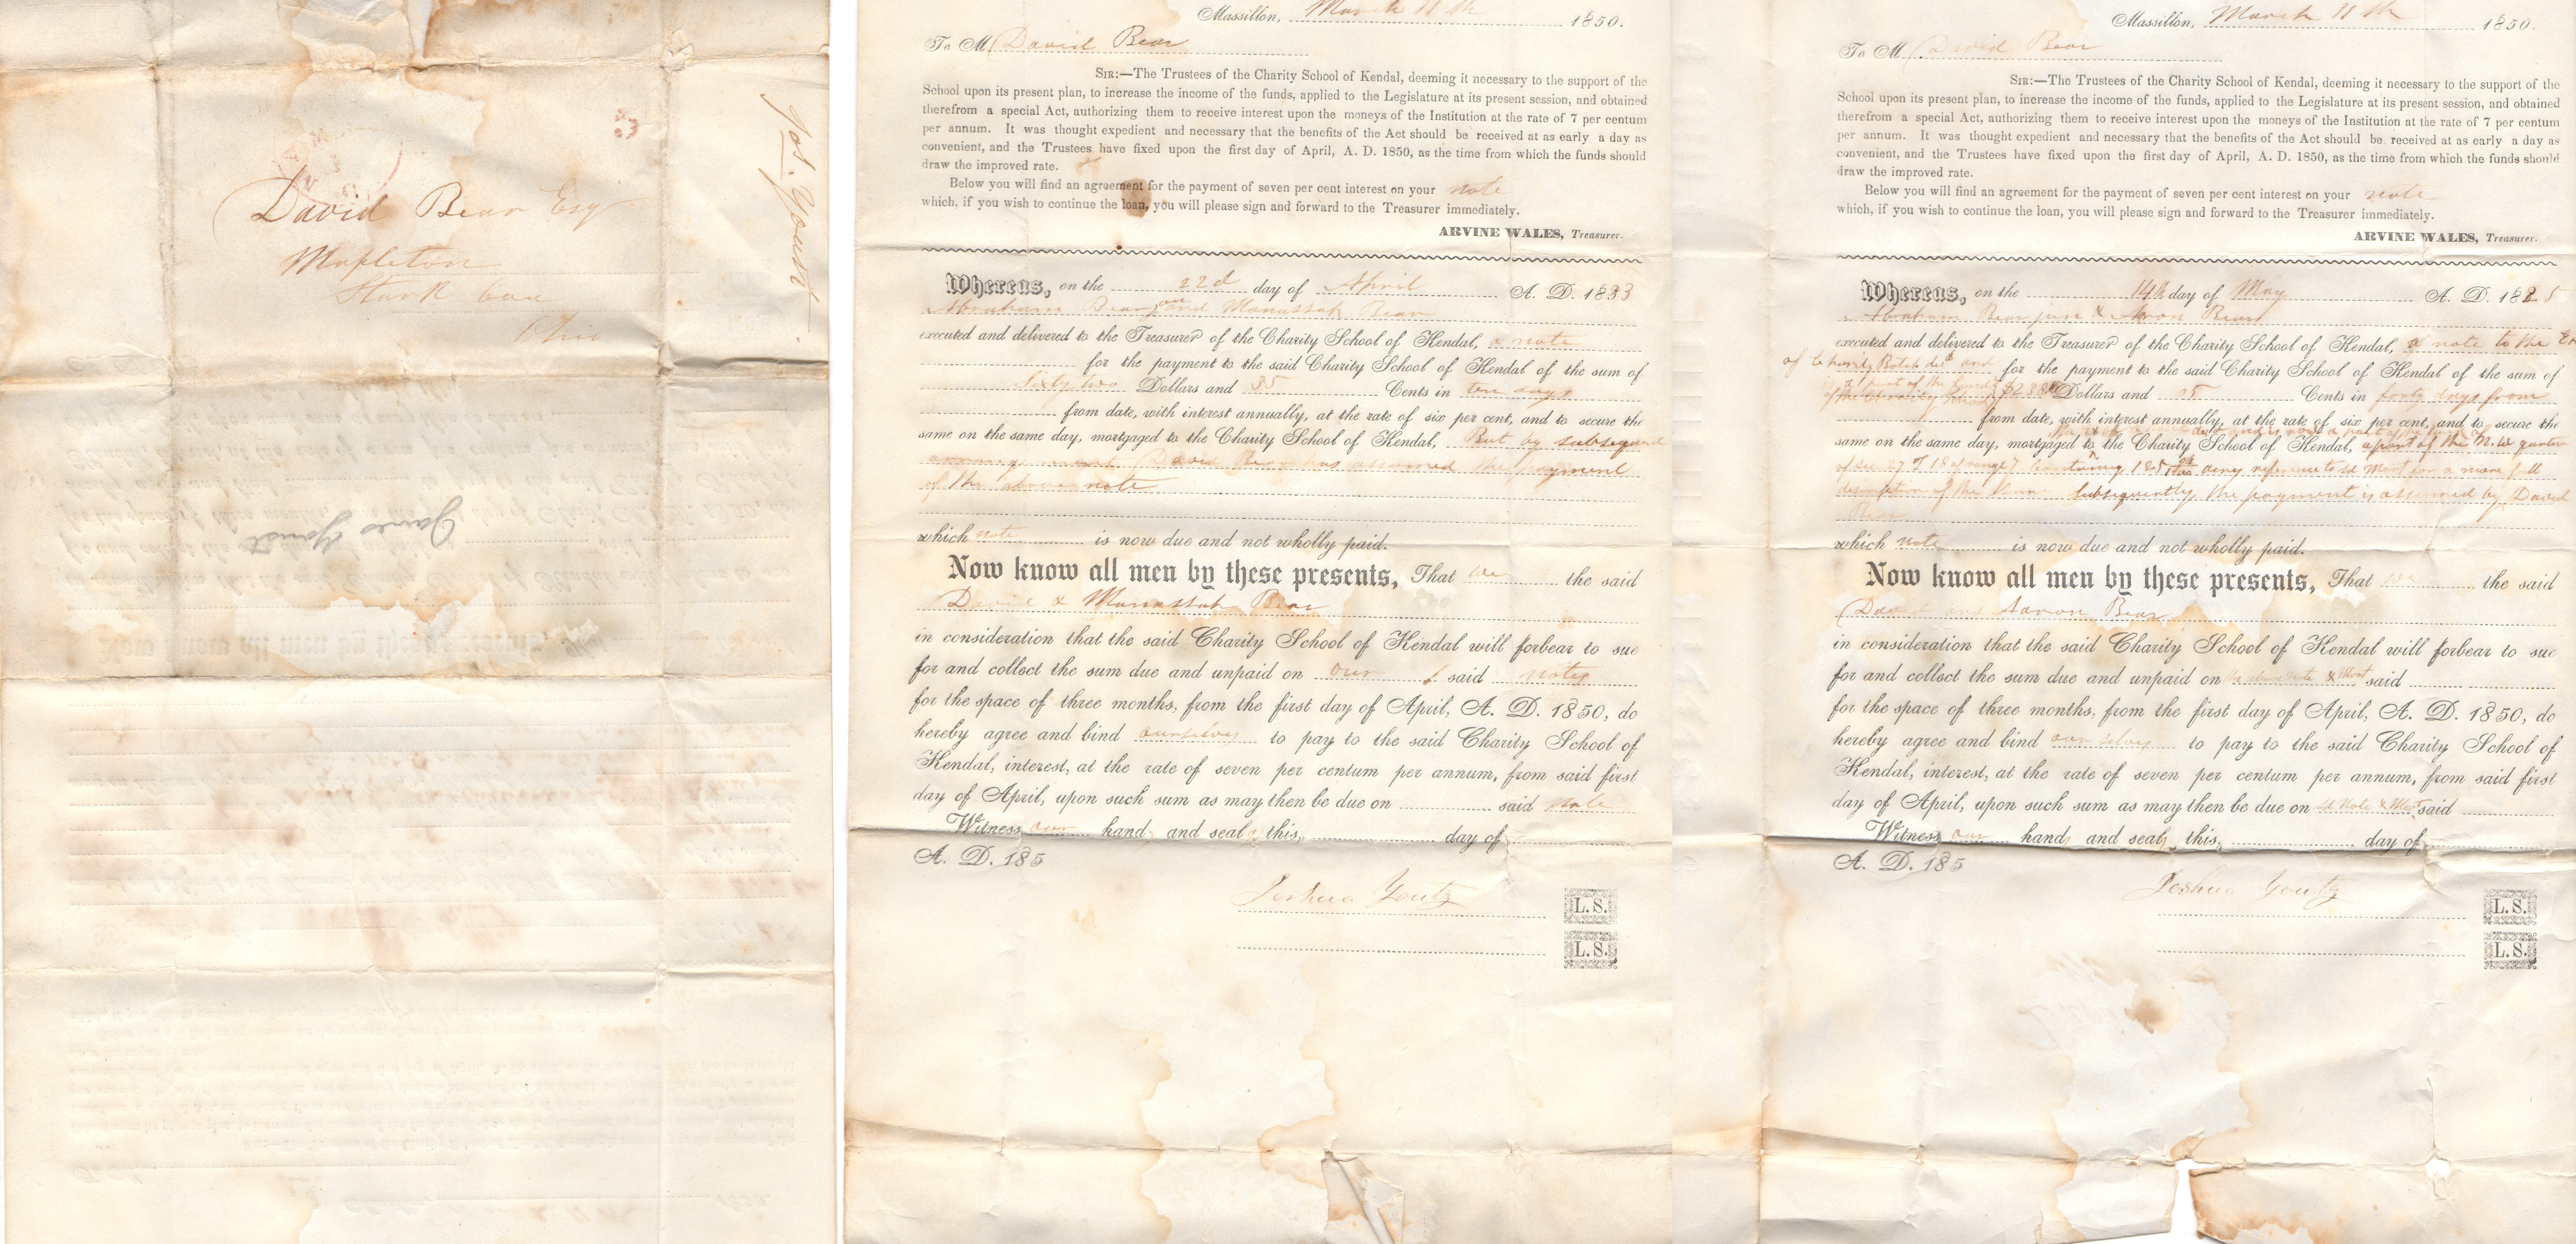 Jos. Youtz
David Bear Esq
Mapleton
Stark
Ohio
James
Massillon, March 11th 1850.
To M David Bear
SIR:—The Trustees of the Charity School of Kendal, deeming it necessary to the support of the
School upon its present plan, to increase the income of the funds, applied to the Legislature at its present session, and obtained
therefrom a special Act, authorizing them to receive interest upon the moneys of the Institution at the rate of 7 per centum
per annum. It was thought expedient and necessary that the benefits of the Act should be received at as early a day as
convenient, and the Trustees have fixed upon the first day of April, A. D. 1850, as the time from which the funds should
draw the improved rate.
Below you will find an agreement for the payment of seven per cent interest on your note
which, if you wish to continue the loan, you will please sign and forward to the Treasurer immediately.
ARVINE WALES, Treasurer.
Whereas, on the 22d day of April A. D. 1833
Abraham Bear and Manassah Bear
executed and delivered to the Treasurer of the Charity School of Kendal, a note
for the payment to the said Charity School of Kendal of the sum of
Sixty two Dollars and 35 Cents in ten days
from date, with interest annually, at the rate of six per cent, and to secure the
same on the same day, mortgaged to the Charity School of Kendal, But by subsequent
David Bear has assumed the payment
of the above note
which note is now due and not wholly paid.
Now know all men by these presents, That we the said
David & Manassah Bear
in consideration that the said Charity School of Kendal will forbear to sue
for and collect the sum due and unpaid on our said notes
for the space of three months, from the first day of April, A. D. 1850, do
hereby agree and bind ourselves to pay to the said Charity School of
Kendal, interest, at the rate of seven per centum per annum, from said first
day of April, upon such sum as may then be due on said Note
Witness our hands and seals this, day of
A. D. 185
Joshua Youtz
L. S.
L. S.
Massillon, March 11th 1850.
To M David Bear
SIR:—The Trustees of the Charity School of Kendal, deeming it necessary to the support of the
School upon its present plan, to increase the income of the funds, applied to the Legislature at its present session, and obtained
therefrom a special Act, authorizing them to receive interest upon the moneys of the Institution at the rate of 7 per centum
per annum. It was thought expedient and necessary that the benefits of the Act should be received at as early a day as
convenient, and the Trustees have fixed upon the first day of April, A. D. 1850, as the time from which the funds should
draw the improved rate.
Below you will find an agreement for the payment of seven per cent interest on your note
which, if you wish to continue the loan, you will please sign and forward to the Treasurer immediately.
ARVINE WALES, Treasurer.
Whereas, on the 14th day of May A. D. 1825
Abraham Bear jun & Aaron Bear
executed and delivered to the Treasurer of the Charity School of Kendal, a note to the
of and for the payment to the said Charity School of Kendal of the sum of
Dollars and 05 Cents in forty days from
from date, with interest annually, at the rate of six per cent, and to secure the
same on the same day, mortgaged to the Charity School of Kendal, a part of the N. W quarter
of sec 27 T 18 of range 7 reference to sd Mort for a more full
description of the same. Subsequently the payment is assumed by David
Bear
which note is now due and not wholly paid.
Now know all men by these presents, That we the said
David and Aaron Bear
in consideration that the said Charity School of Kendal will forbear to sue
for and collect the sum due and unpaid on the above note & Mort said
for the space of three months, from the first day of April, A. D. 1850, do
hereby agree and bind our selves to pay to the said Charity School of
Kendal, interest, at the rate of seven per centum per annum, from said first
day of April, upon such sum as may then be due on sd Note & Mort said
Witness our hands and seals, this, day of
A. D. 185
Joshua Youtz
L. S.
L. S.